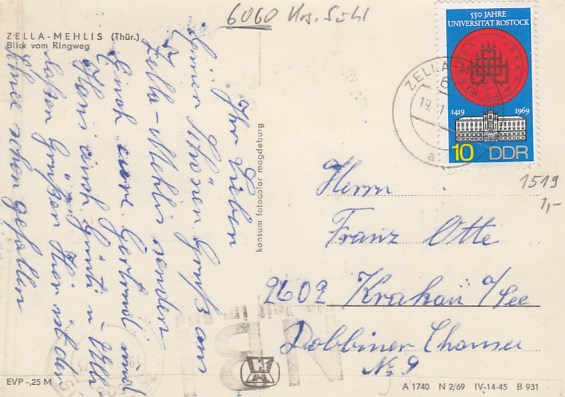 6060 Krs. Suhl
ZELLA-MEHLIS (Thür.)
Blick vom Ringweg
Ihr Lieben
Einen schönen Gruß aus
Zella-Mehlis senden
Euch eure Gertrud und
Horst auch Günti u. Ulla
lassen Grüßen. Hier ist der
Schnee schon gefallen
konsum fotocolor magdeburg
550 JAHRE
UNIVERSITÄT ROSTOCK
1419 1969
10 DDR
ZELLA
1519
1,-
Herrn
Franz Otte
2602 Krakau a/See
Dobbiner Chaussee
No 9
EVP -,25 M
A 1740 N 2/69 IV-14-45 B 931